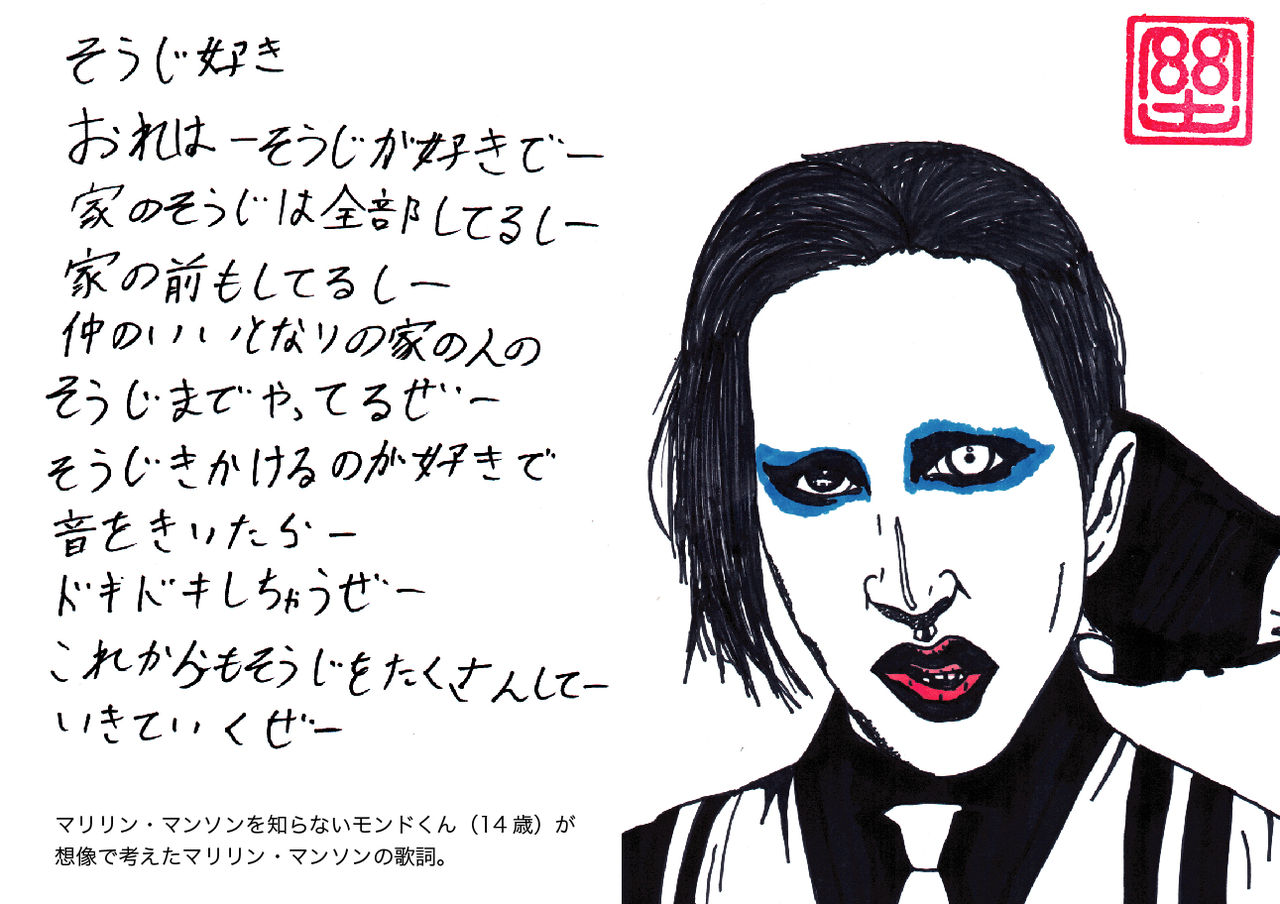 そうじ好き
おれはーそうじが好きでー
家のそうじは全部してるしー
家の前もしてるしー
仲のいいとなりの家の人の
そうじまでやってるぜぃー
そうじきかけるのが好きで
音をきいたらー
ドキドキしちゃうぜー
これからもそうじをたくさんしてー
いきていくぜー
マリリン・マンソンを知らないモンドくん(14 歳)が
想像で考えたマリリン・マンソンの歌詞。